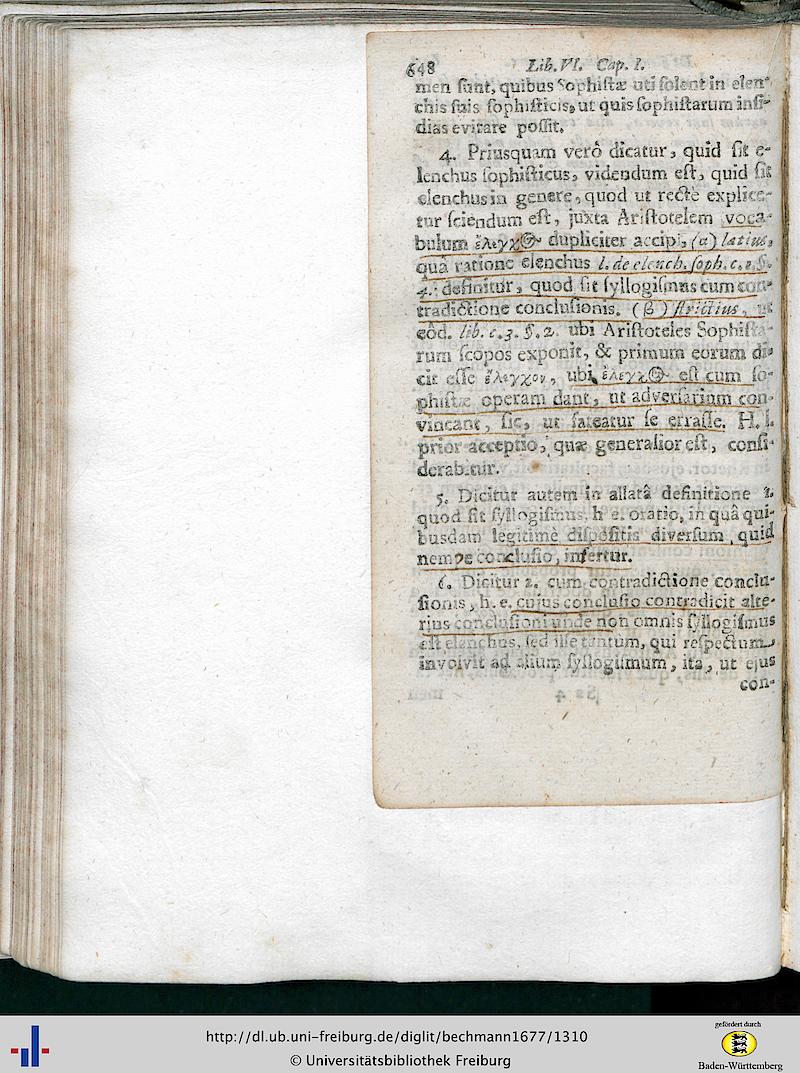 648 Lib. VI. Cap. I.
men ſunt, quibus Sophiſtæ uti ſolent in elen-
chis ſuis ſophiſticis, ut quis ſophiſtarum inſi-
dias evitare poſſit.
4. Priusquam verò dicatur, quid ſit e-
lenchus ſophiſticus, videndum eſt, quid ſit
elenchus in genere, quod ut rectè explice-
tur ſciendum eſt, juxta Ariſtotelem voca-
bulum ἔλεγχ@ dupliciter accipi, (α) latius,
quâ ratione elenchus l. de elench. ſoph. c. 1. §.
4. definitur, quod ſit ſyllogiſmus cum con-
tradictione concluſionis. (β) ſtrictius, ut
eôd. lib. c. 3. §. 2. ubi Ariſtoteles Sophiſta-
rum ſcopos exponit, & primum eorum di-
cit eſſe ἔλεγχον, ubi ἔλεγχ@ eſt cum ſo-
phiſtæ operam dant, ut adverſarium con-
vincant, ſic, ut fateatur ſe erraſſe. H. l.
prior acceptio, quæ generalior eſt, conſi-
derabitur.
5. Dicitur autem in allatâ definitione 1.
quod ſit ſyllogiſmus, h e. oratio, in quâ qui-
busdam legitimè diſpoſitis diverſum quid
nempe concluſio, infertur.
6. Dicitur 2. cum contradictione conclu-
ſionis, h. e. cujus concluſio contradicit alte-
rius concluſioni unde non omnis ſyllogiſmus
eſt elenchus, ſed iſte tantum, qui reſpectum
involvit ad alium ſyllogiſmum, ita, ut ejus
con-
http://dl.ub.uni-freiburg.de/diglit/bechmann1677/1310
© Universitätsbibliothek Freiburg
gefördert durch
Baden-Württemberg